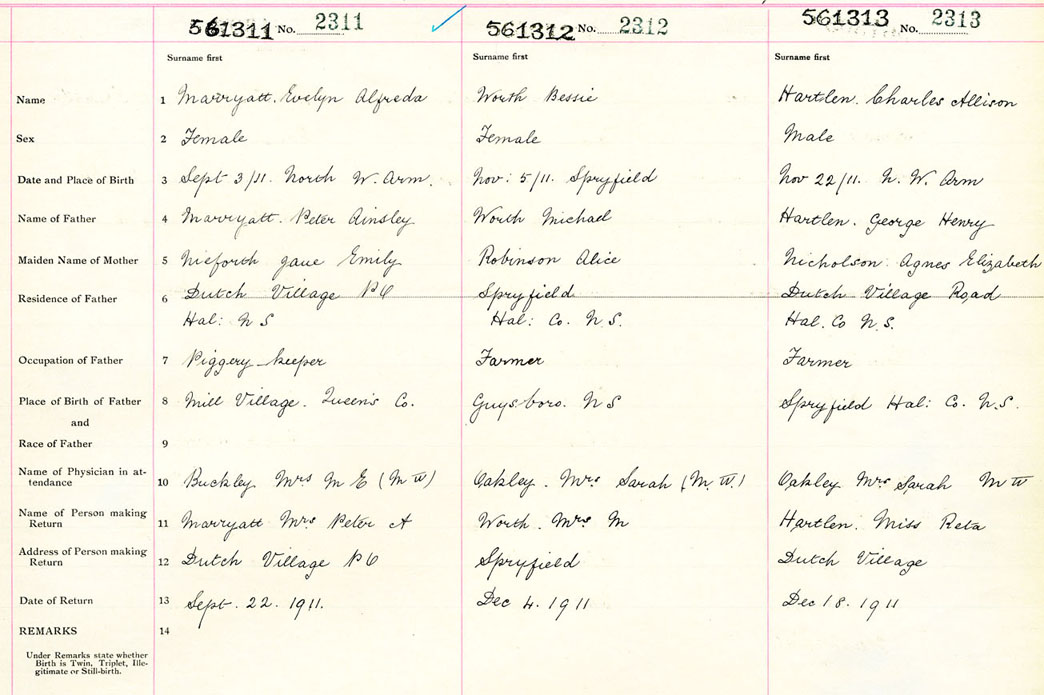 561311 No. 2311 561312 No. 2312 561313 No. 2313
Surname first Surname first Surname first
Name 1 Marryatt. Evelyn Alfreda Worth Bessie Hartlen. Charles Allison
Sex 2 Female Female Male
Date and Place of Birth 3 Sept 3/11. North W. Arm. Nov: 5/11. Spryfield Nov 22/11. N. W. Arm
Name of Father 4 Marryatt. Peter Ainsley Worth Michael Hartlen. George Henry
Maiden Name of Mother 5 Nieforth Jane Emily Robinson Alice Nicholson. Agnes Elizabeth
Residence of Father 6 Dutch Village PO Spryfield Dutch Village Road
Hal: N S Hal: Co. N.S. Hal. Co N.S.
Occupation of Father 7 Piggery keeper Farmer Farmer
Place of Birth of Father 8 Mill Village. Queen's Co. Guysboro. N S Spryfield Hal: Co. N.S.
and
Race of Father 9
Name of Physician in at-
tendance 10 Buckley Mrs M E (M W) Oakley. Mrs Sarah (M. W.) Oakley Mrs Sarah M W
Name of Person making
Return 11 Marryatt Mrs Peter A Worth. Mrs M Hartlen. Miss Reta
Address of Person making
Return 12 Dutch Village PO Spryfield Dutch Village
Date of Return 13 Sept. 22. 1911. Dec 4. 1911 Dec 18. 1911
REMARKS 14
Under Remarks state whether
Birth is Twin, Triplet, Ille-
gitimate or Still-birth.